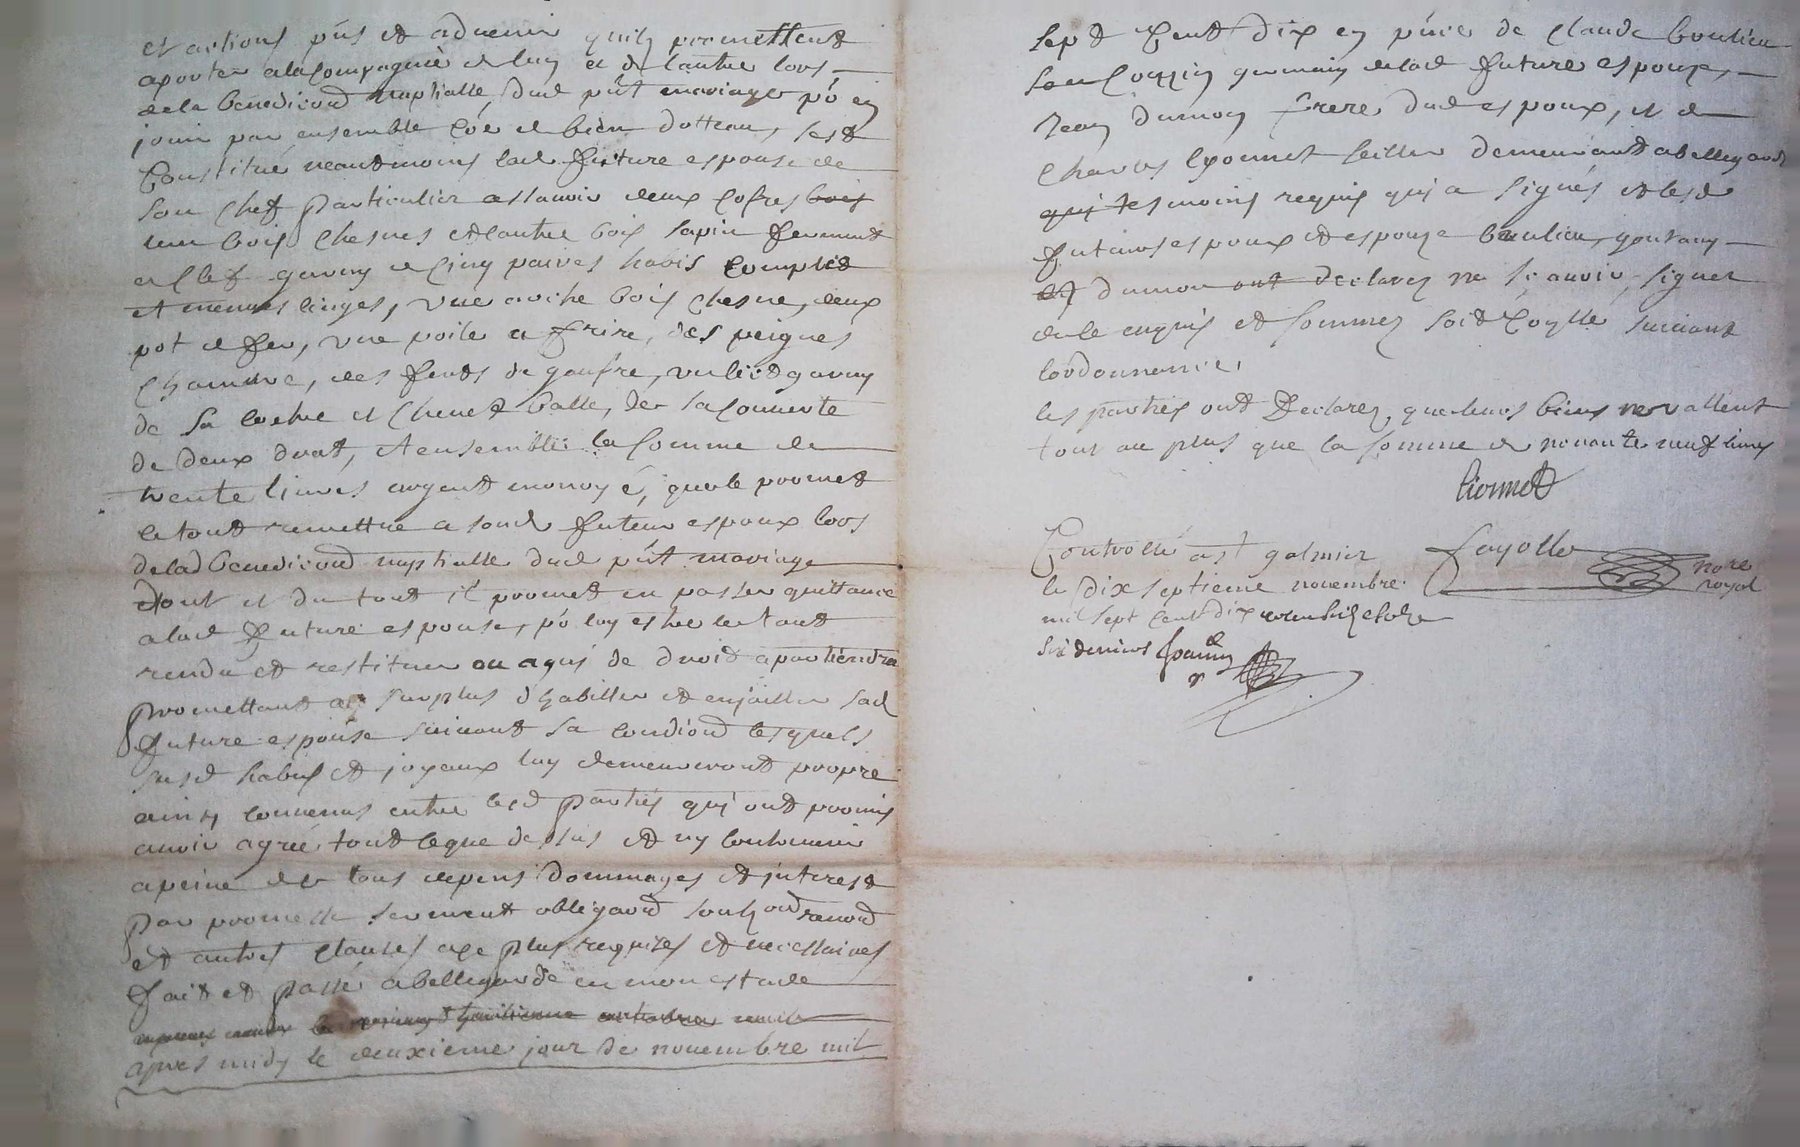 et actions pñs et advenir quilz promettent
aporter a la Compagnie de luy et de lautre lors
de la benediond nuptialle dud pñt mariage po en
jouir par ensemble coe de bien dottau, sest
Constitué neantmoins lad future espouse de
son Chef particulier assavoir deux Cofres bois
un bois Chesnes et lautre bois sapin fermant
a Clef garny de Cinq paires habis Complet
et menus linges, une arche bois Chesne, deux
pot de fer, une poile a frire, des peignes
Chanvre, des de gaufre, un lict garny
de sa coettre et Chevet balle, de sa Couverte
de deux drat, et ensemble la somme de
trente livres argent monoyé, que le promet
le tout remettre a sond futeur espoux lors
de lad benediond nuptialle dud pñt mariage
dont et du tout il promet en passer quittance
a lad future espouse, po luy estre le tout
rendu et restitué ou a qui de droit apartiendra
promettant au surplus dhabiller et enjoailler sad
future espouse suivant sa condiond lesquels
susd habis et joyeaux luy demeureront propre
ainsy convenus entre lesd parties qui ont promis
avoir agreé tout ceque dessus et ny contrevenir
a peine de tous depens dommages et interest
par promesse serment obligaond soubzond renond
et autres clauses a ce plus requises et necessaires
fait et passé a bellegarde en mon estude
apres midy le deuxieme jour de novembre mil
sept Cent dix en pñce de Claude boulieu
son Cozzin germain de lad future espouze,
Jean dumon frere dud espoux, et de
Charles Lyonnet sellier demeurant a bellegarde
qui tesmoins requis qui a signés et lesd
futeurs espoux et espouze boulieu,
et dumon ont declarez ne scavoir signer
de ce enquis et sommez soit Coñllé suivant
lordonnance,
les parties ont declarez que leurs biens ne vallent
tout au plus que la somme de nonante neuf livres
Lionnet
Controllé a st galmier
le dix septieme novembre
mil sept Cent dix
six deniers
fayolle
nore
royal